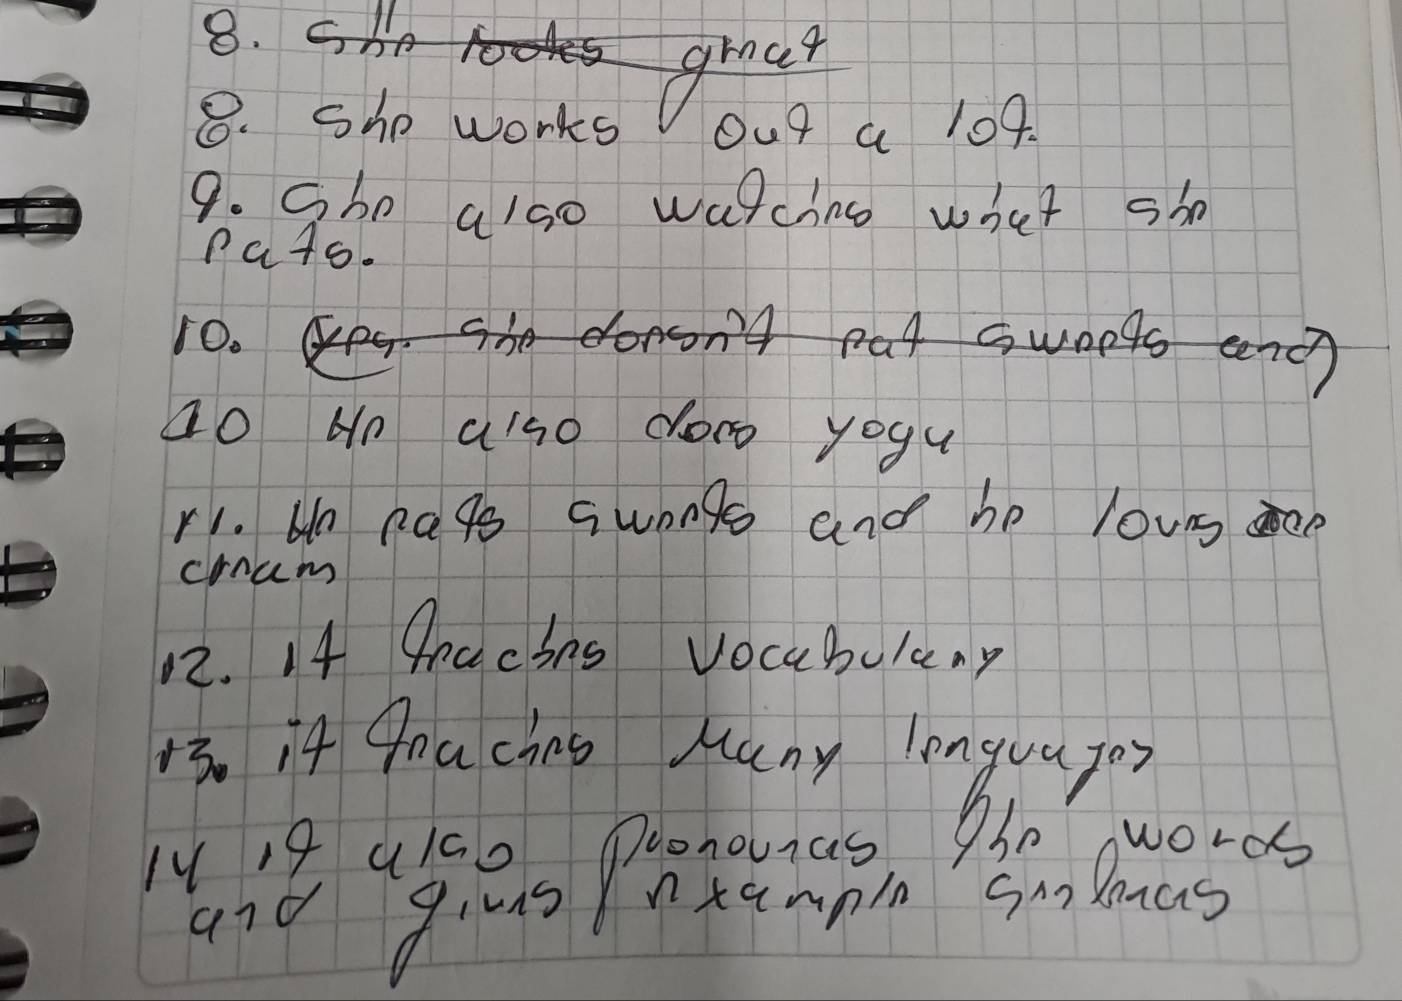 8. She looks great
8. She works out a lot.
9. She also watches what she
eats.
10. (yes. She doesn't eat sweets and)
10 He also does yoga
11. He eats sweets and he loves ice
cream
12. it teaches vocabulary
13. it teaches Many lenguages
14 it also pronounces the words
and gives example sentences